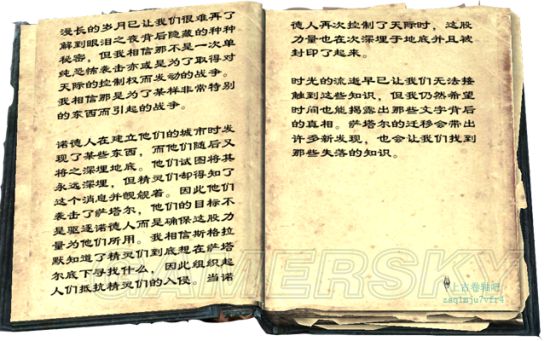 漫长的岁月已让我们很难再了
解到眼泪之夜背后隐藏的种种
秘密，但我相信那不是一次单
纯恐怖袭击亦或是为了取得对
天际的控制权而发动的战争。
我相信那是为了某样非常特别
的东西而引起的战争。
诺德人在建立他们的城市时发
现了某些东西，而他们随后又
将之深埋地底。他们试图将其
永远深埋，但精灵们却得知了
这个消息并觊觎着。因此他们
袭击了萨塔尔，他们的目标不
是驱逐诺德人而是确保这股力
量为他们所用。我相信斯格拉
默知道了精灵们到底想在萨塔
尔底下寻找什么，因此组织起
人们抵抗精灵们的入侵。当诺
德人再次控制了天际时，这股
力量也在次深埋于地底并且被
封印了起来。
时光的流逝早已让我们无法接
触到这些知识，但我仍然希望
时间也能揭露出那些文字背后
的真相。萨塔尔的迁移会带出
许多新发现，也会让我们找到
那些失落的知识。
GAMERSKY
上古卷轴吧
zaq1mju7vfr4